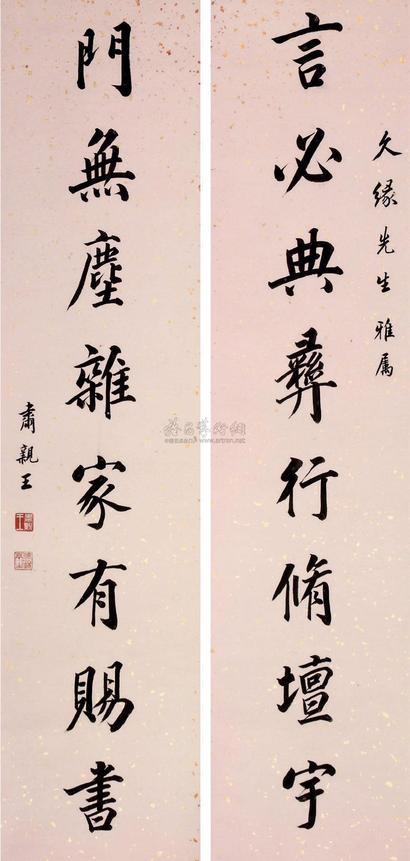 久緣先生雅屬
言必典彞行脩壇宇
門無塵雜家有賜書
肅親王
雅昌藝術網
www.artron.net